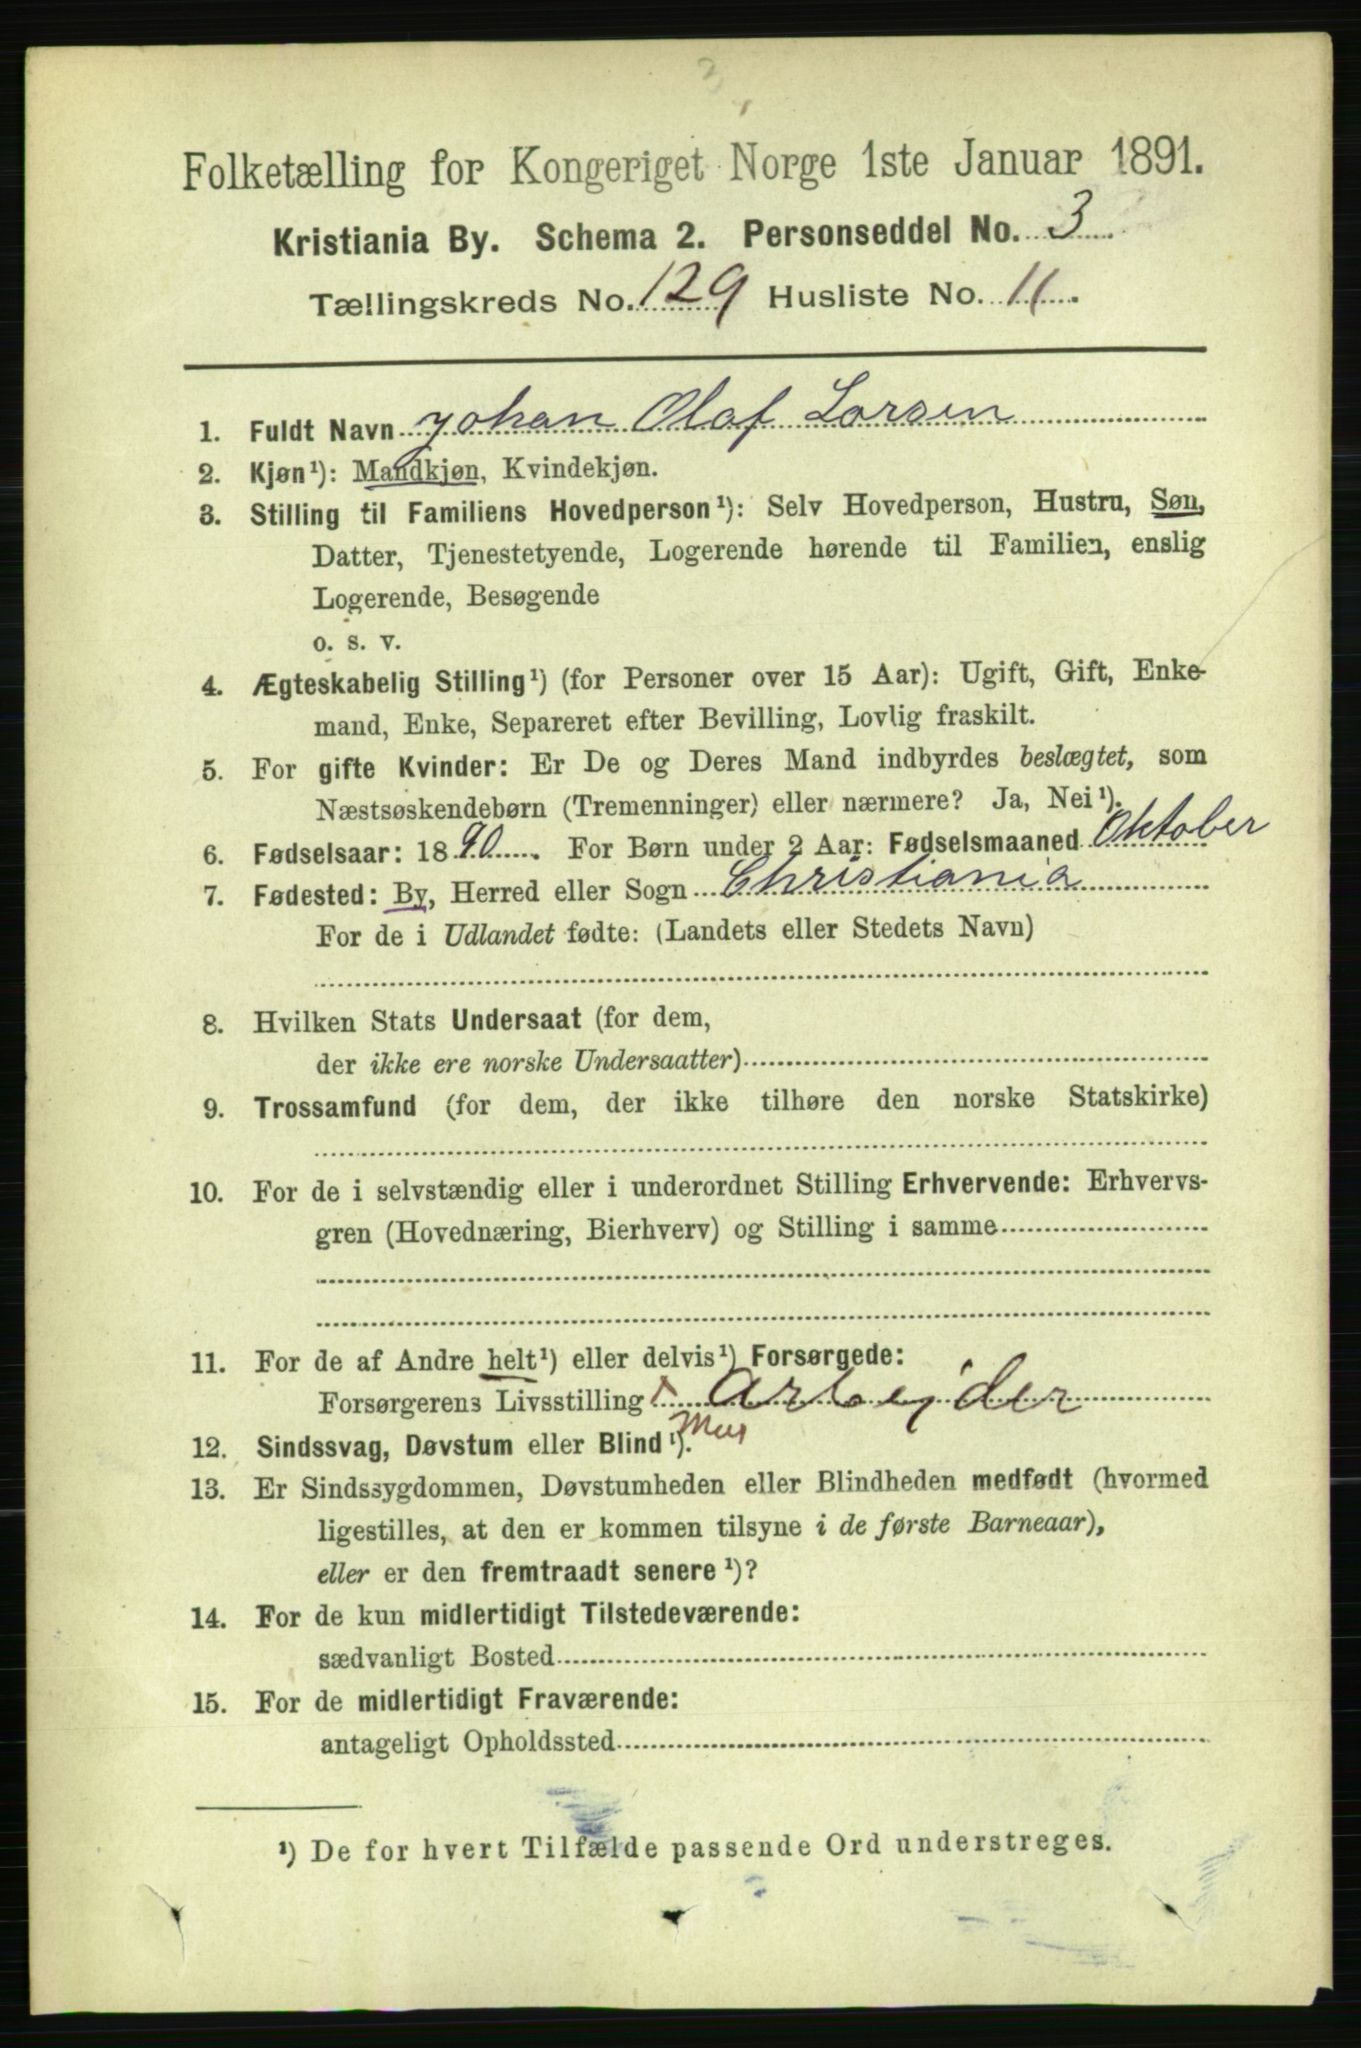 Folketælling for Kongeriget Norge 1ste Januar 1891.
Kristiania By. Schema 2. Personseddel No. 3
Tællingskreds No. 129 Husliste No. 11.
1. Fuldt Navn Johan Olaf Larsen
2. Kjøn¹): Mandkjøn, Kvindekjøn.
3. Stilling til Familiens Hovedperson¹): Selv Hovedperson, Hustru, Søn,
Datter, Tjenestetyende, Logerende hørende til Familien, enslig
Logerende, Besøgende
o. s. v.
4. Ægteskabelig Stilling¹) (for Personer over 15 Aar): Ugift, Gift, Enke-
mand, Enke, Separeret efter Bevilling, Lovlig fraskilt.
5. For gifte Kvinder: Er De og Deres Mand indbyrdes beslægtet, som
Næstsøskendebørn (Tremenninger) eller nærmere? Ja, Nei¹).
6. Fødselsaar: 1890. For Børn under 2 Aar: Fødselsmaaned Oktober
7. Fødested: By, Herred eller Sogn Christiania
For de i Udlandet fødte: (Landets eller Stedets Navn)
8. Hvilken Stats Undersaat (for dem,
der ikke ere norske Undersaatter)
9. Trossamfund (for dem, der ikke tilhøre den norske Statskirke)
10. For de i selvstændig eller i underordnet Stilling Erhvervende: Erhvervs-
gren (Hovednæring, Bierhverv) og Stilling i samme
11. For de af Andre helt¹) eller delvis¹) Forsørgede:
Forsørgerens Livsstilling Arbejder
12. Sindssvag, Døvstum eller Blind¹).
13. Er Sindssygdommen, Døvstumheden eller Blindheden medfødt (hvormed
ligestilles, at den er kommen tilsyne i de første Barneaar),
eller er den fremtraadt senere¹)?
14. For de kun midlertidigt Tilstedeværende:
sædvanligt Bosted
15. For de midlertidigt Fraværende:
antageligt Opholdssted
¹) De for hvert Tilfælde passende Ord understreges.